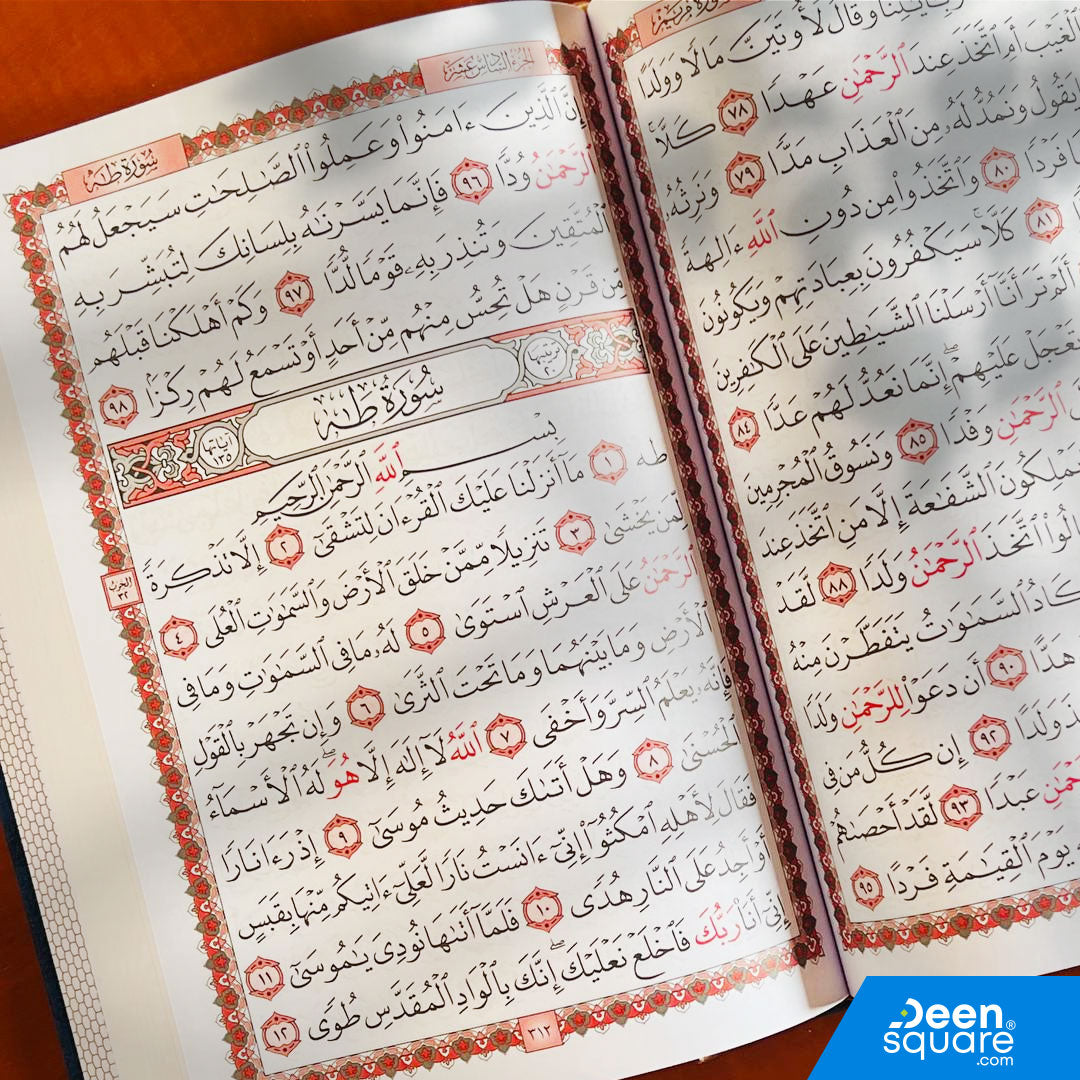 سُورَةُ مَرْيَمَ
وَقَالَ لَأُوتَيَنَّ مَالًا وَوَلَدًا
ٱلْغَيْبَ أَمِ ٱتَّخَذَ عِندَ ٱلرَّحْمَٰنِ عَهْدًا ٧٨ كَلَّا
يَقُولُ وَنَمُدُّ لَهُۥ مِنَ ٱلْعَذَابِ مَدًّا ٧٩ وَنَرِثُهُۥ
فَرْدًا ٨٠ وَٱتَّخَذُوا۟ مِن دُونِ ٱللَّهِ ءَالِهَةً
٨١ كَلَّا سَيَكْفُرُونَ بِعِبَادَتِهِمْ وَيَكُونُونَ
أَلَمْ تَرَ أَنَّآ أَرْسَلْنَا ٱلشَّيَٰطِينَ عَلَى ٱلْكَٰفِرِينَ
تَعْجَلْ عَلَيْهِمْ ۖ إِنَّمَا نَعُدُّ لَهُمْ عَدًّا ٨٤
ٱلرَّحْمَٰنِ وَفْدًا ٨٥ وَنَسُوقُ ٱلْمُجْرِمِينَ
يَمْلِكُونَ ٱلشَّفَٰعَةَ إِلَّا مَنِ ٱتَّخَذَ عِندَ
ٱتَّخَذَ ٱلرَّحْمَٰنُ وَلَدًا ٨٨ لَقَدْ
تَكَادُ ٱلسَّمَٰوَٰتُ يَتَفَطَّرْنَ مِنْهُ
هَدًّا ٩٠ أَن دَعَوْا۟ لِلرَّحْمَٰنِ وَلَدًا
وَلَدًا ٩٢ إِن كُلُّ مَن فِى
ٱلرَّحْمَٰنِ عَبْدًا ٩٣ لَّقَدْ أَحْصَىٰهُمْ
يَوْمَ ٱلْقِيَٰمَةِ فَرْدًا ٩٥
الجزء السادس عشر
سُورَةُ طه
إِنَّ ٱلَّذِينَ ءَامَنُوا۟ وَعَمِلُوا۟ ٱلصَّٰلِحَٰتِ سَيَجْعَلُ لَهُمُ
ٱلرَّحْمَٰنُ وُدًّا ٩٦ فَإِنَّمَا يَسَّرْنَٰهُ بِلِسَانِكَ لِتُبَشِّرَ بِهِ
ٱلْمُتَّقِينَ وَتُنذِرَ بِهِۦ قَوْمًا لُّدًّا ٩٧ وَكَمْ أَهْلَكْنَا قَبْلَهُم
مِّن قَرْنٍ هَلْ تُحِسُّ مِنْهُم مِّنْ أَحَدٍ أَوْ تَسْمَعُ لَهُمْ رِكْزًۢا ٩٨
ترتيبها ٢٠
سُورَةُ طه
آياتها ١٣٥
بِسْمِ ٱللَّهِ ٱلرَّحْمَٰنِ ٱلرَّحِيمِ
طه ١ مَآ أَنزَلْنَا عَلَيْكَ ٱلْقُرْءَانَ لِتَشْقَىٰٓ ٢ إِلَّا تَذْكِرَةً
لِّمَن يَخْشَىٰ ٣ تَنزِيلًا مِّمَّنْ خَلَقَ ٱلْأَرْضَ وَٱلسَّمَٰوَٰتِ ٱلْعُلَى ٤
ٱلرَّحْمَٰنُ عَلَى ٱلْعَرْشِ ٱسْتَوَىٰ ٥ لَهُۥ مَا فِى ٱلسَّمَٰوَٰتِ وَمَا فِى
ٱلْأَرْضِ وَمَا بَيْنَهُمَا وَمَا تَحْتَ ٱلثَّرَىٰ ٦ وَإِن تَجْهَرْ بِٱلْقَوْلِ
فَإِنَّهُۥ يَعْلَمُ ٱلسِّرَّ وَأَخْفَى ٧ ٱللَّهُ لَآ إِلَٰهَ إِلَّا هُوَ ۖ لَهُ ٱلْأَسْمَآءُ
ٱلْحُسْنَىٰ ٨ وَهَلْ أَتَىٰكَ حَدِيثُ مُوسَىٰٓ ٩ إِذْ رَءَا نَارًا
فَقَالَ لِأَهْلِهِ ٱمْكُثُوٓا۟ إِنِّىٓ ءَانَسْتُ نَارًا لَّعَلِّىٓ ءَاتِيكُم مِّنْهَا بِقَبَسٍ
أَوْ أَجِدُ عَلَى ٱلنَّارِ هُدًى ١٠ فَلَمَّآ أَتَىٰهَا نُودِىَ يَٰمُوسَىٰٓ ١١
إِنِّىٓ أَنَا۠ رَبُّكَ فَٱخْلَعْ نَعْلَيْكَ ۖ إِنَّكَ بِٱلْوَادِ ٱلْمُقَدَّسِ طُوًى ١٢
الحزب ٣٢
٣١٢
Deen
square®
.com